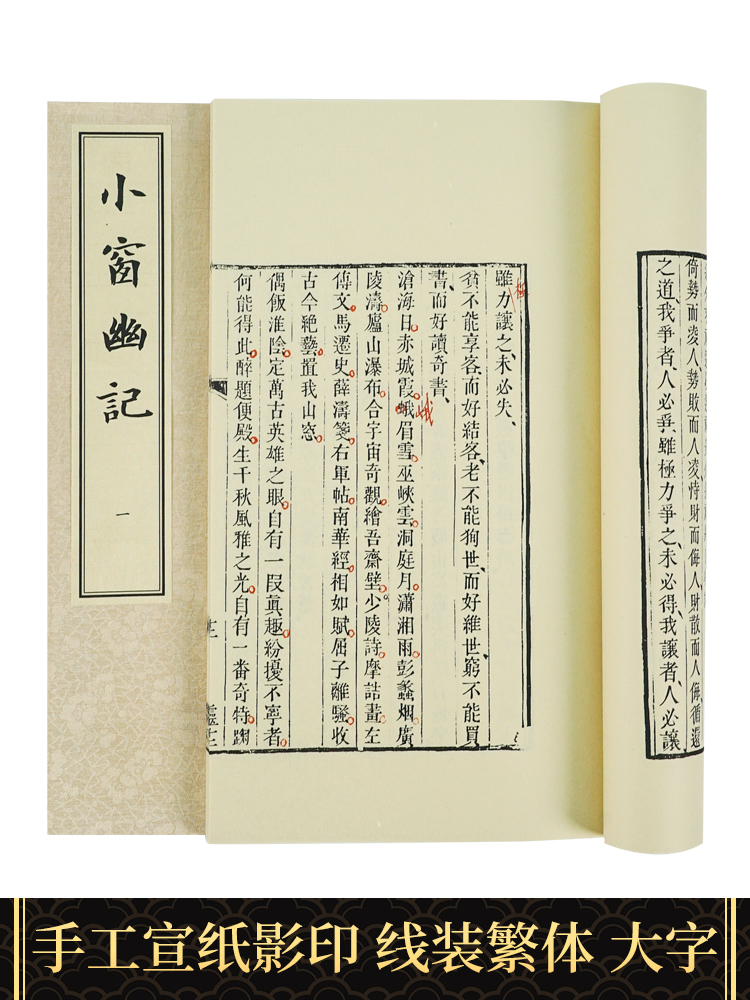 小窗幽記
一
倚勢而凌人、勢敗而人凌、恃財而侮人、財散而人侮、循還
之道、我爭者、人必爭、雖極力爭之、未必得、我讓者、人必讓
雖力讓之、未必失、
極
貧不能享客、而好結客、老不能狥世、而好維世、窮不能買
書、而好讀奇書、
滄海日。赤城霞。蛾眉雪。巫峽雲。洞庭月。瀟湘雨。彭蠡烟。廣
陵濤。廬山瀑布。合宇宙奇觀。繪吾齋壁。少陵詩。摩詰畫。左
傳文。馬遷史。薛濤箋。右軍帖。南華經。相如賦。屈子離騷。收
古今絶藝。置我山窓。
偶飯淮陰。定萬古英雄之眼。自有一段眞趣。紛擾不寧者。
何能得此。醉題便殿。生千秋風雅之光。自有一番奇特。踘
手工宣纸影印 线装繁体 大字